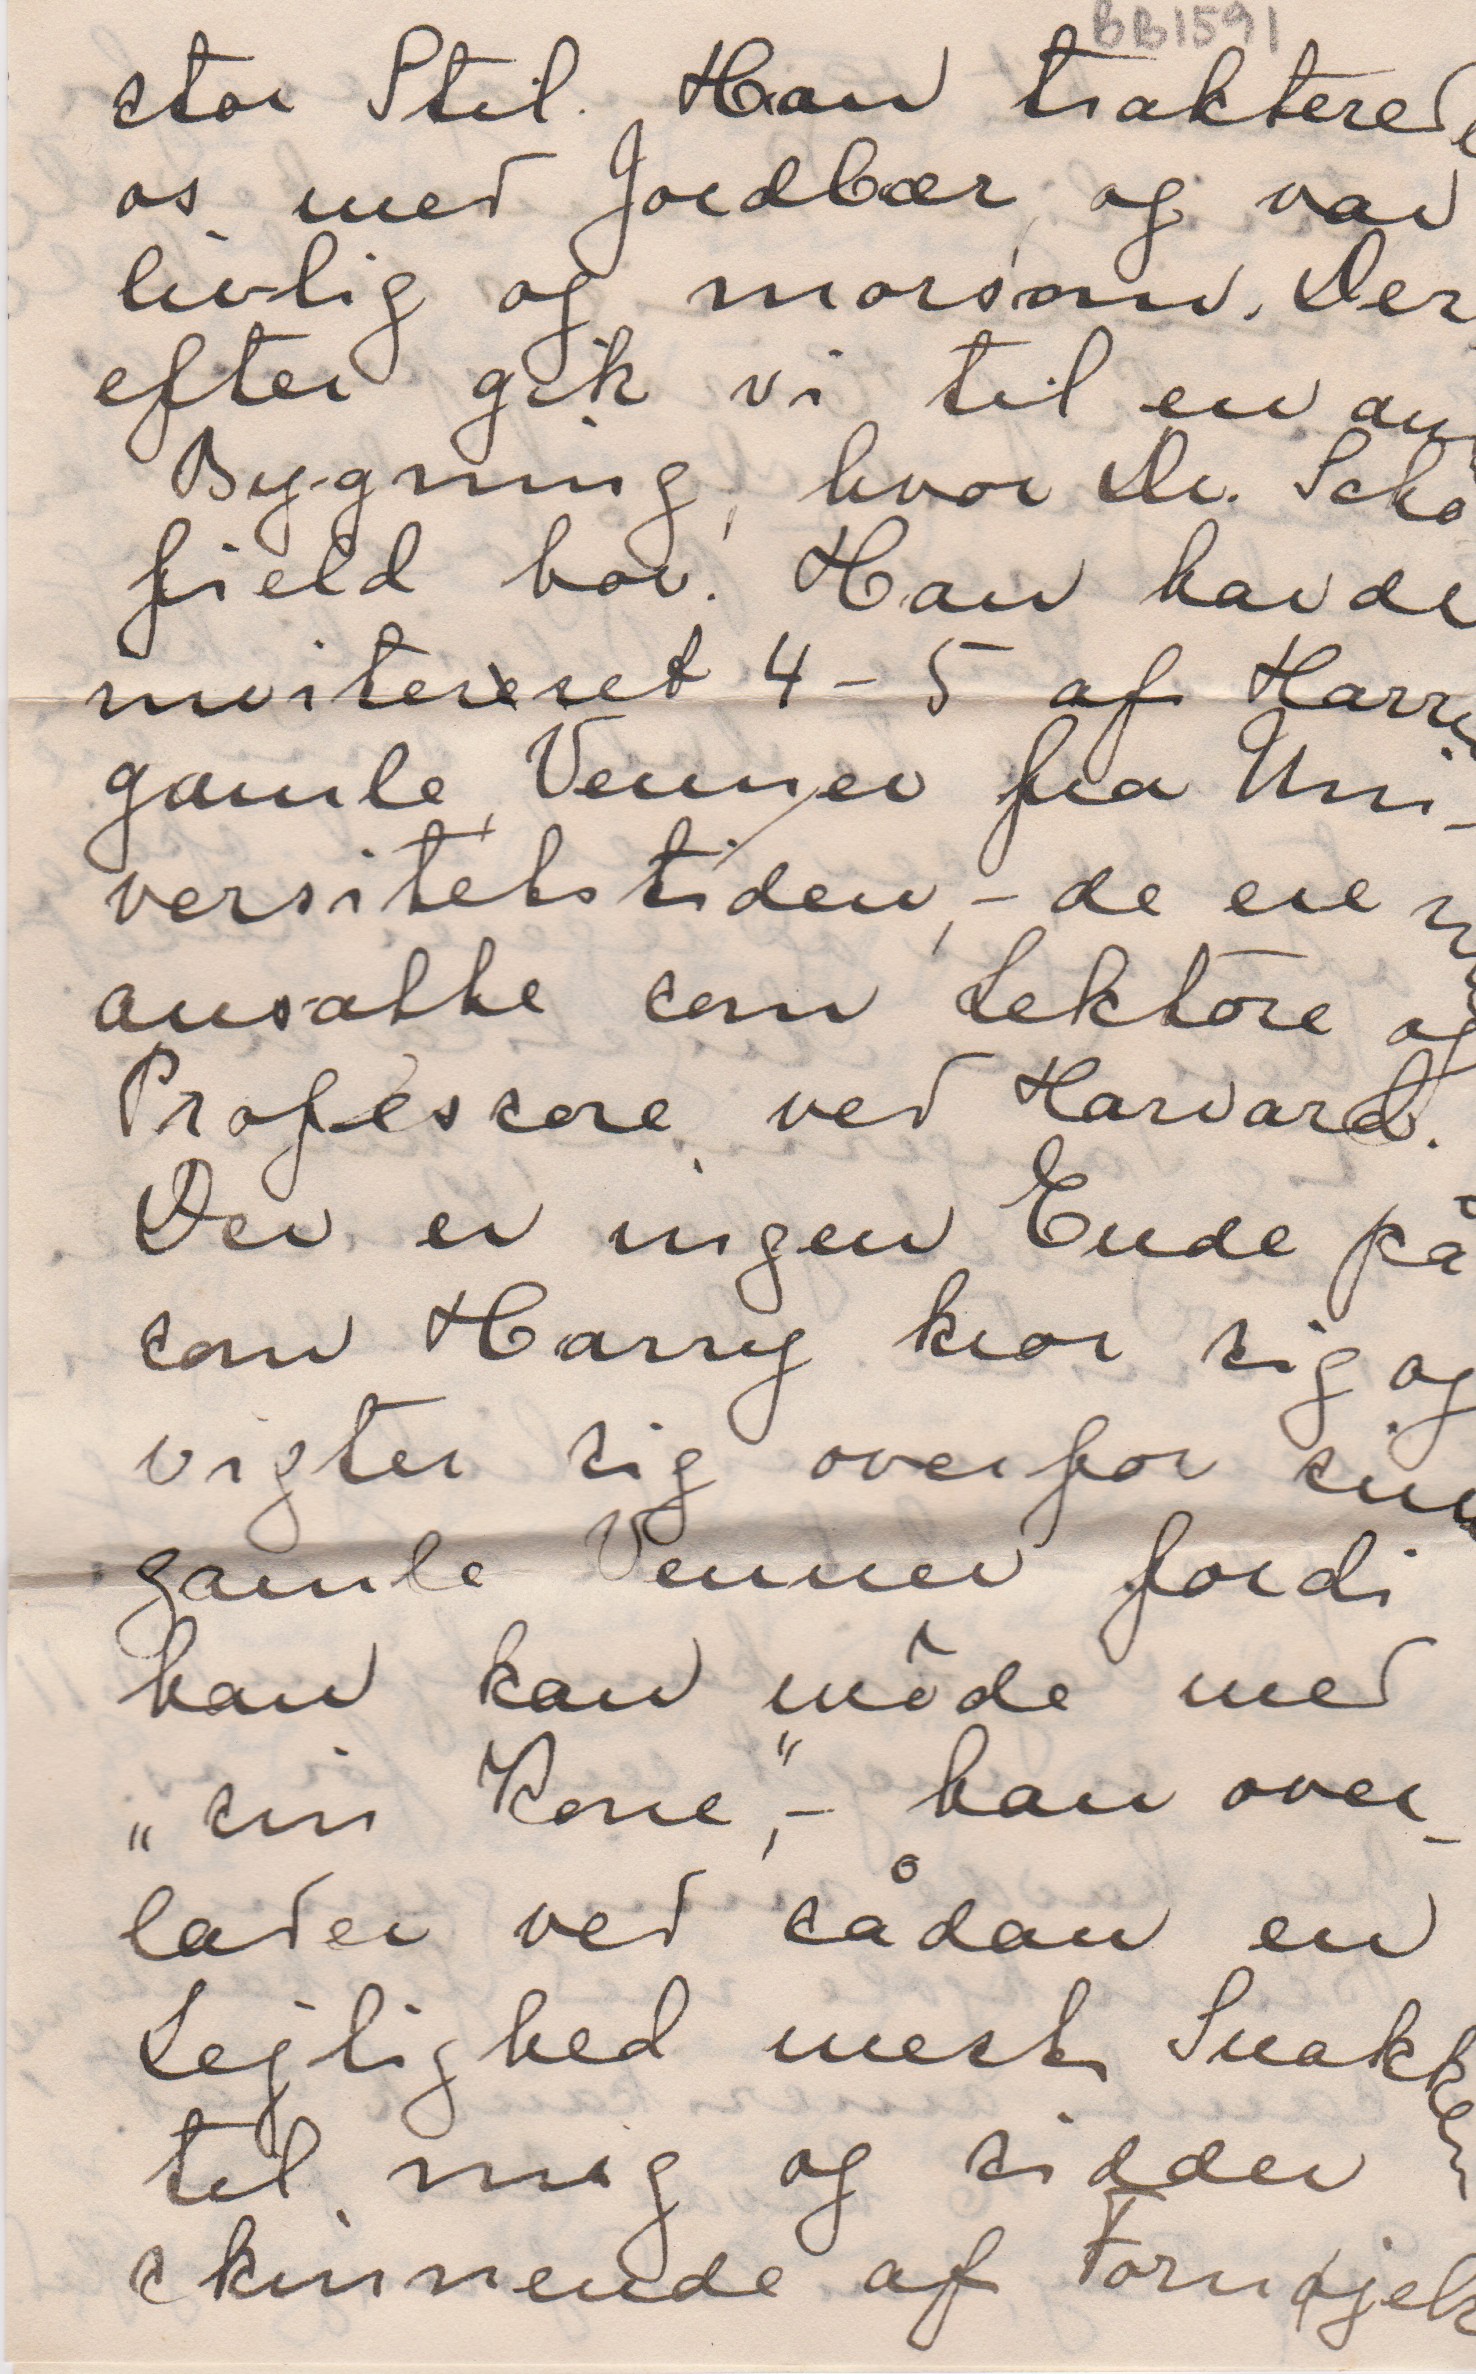 BB1591
stor Stil. Han trakterede
os med Jordbær og var
livlig og morsom. Der
efter gik vi til en an
Bygning, hvor Dr. Scho
field bor. Han havde
invitereret 4-5 af Harry
gamle Venner fra Uni-
versitetstiden, - de ere n
ansatte som Lektore og
Professore ved Harvard.
Der er ingen Ende på
som Harry kror sig og
vigter sig overfor sine
gamle Venner fordi
han kan møde med
„sin Kone”, - han over-
lader ved sådan en
Lejlighed mest Snakken
til mig og sidder
skinnende af Fornøjels